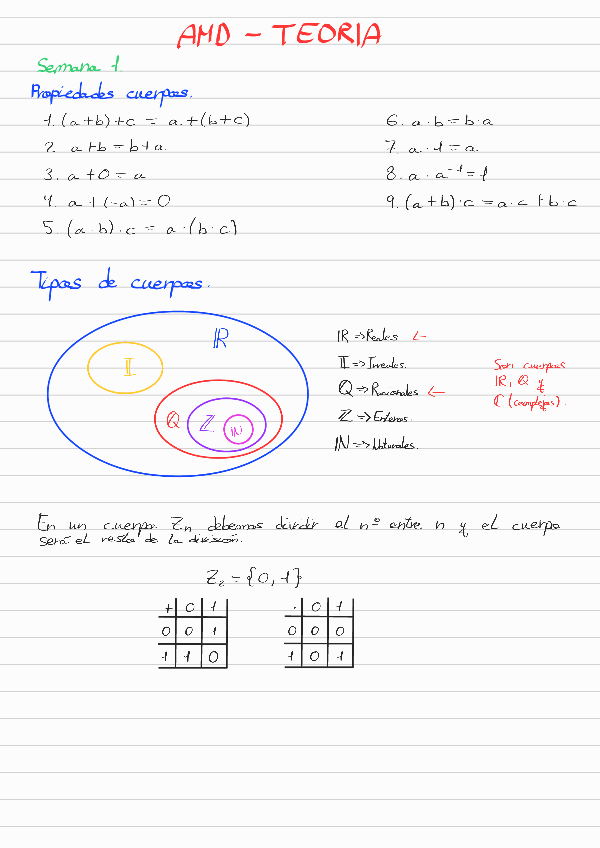 AMD - TEORIA
Semana 1
Propiedades cuerpos.
1. (a+b)+c = a+(b+c)
2. a+b = b+a.
3. a+0 = a
4. a+(-a) = 0
5. (a·b)·c = a·(b·c)
6. a·b = b·a
7. a·1 = a.
8. a·a⁻¹ = 1
9. (a+b)·c = a·c + b·c
Tipos de cuerpos.
ℝ
𝕀
ℚ ℤ ℕ
ℝ => Reales ←
𝕀 => Irreales.
ℚ => Racionales ←
ℤ => Enteros.
ℕ => Naturales.
Son cuerpos
ℝ, ℚ y
ℂ (complejos).
En un cuerpo Zn debemos dividir al nº entre n y el cuerpo
será el resto de la división.
Z₂ = {0, 1}
+ 0 1
0 0 1
1 1 0
· 0 1
0 0 0
1 0 1